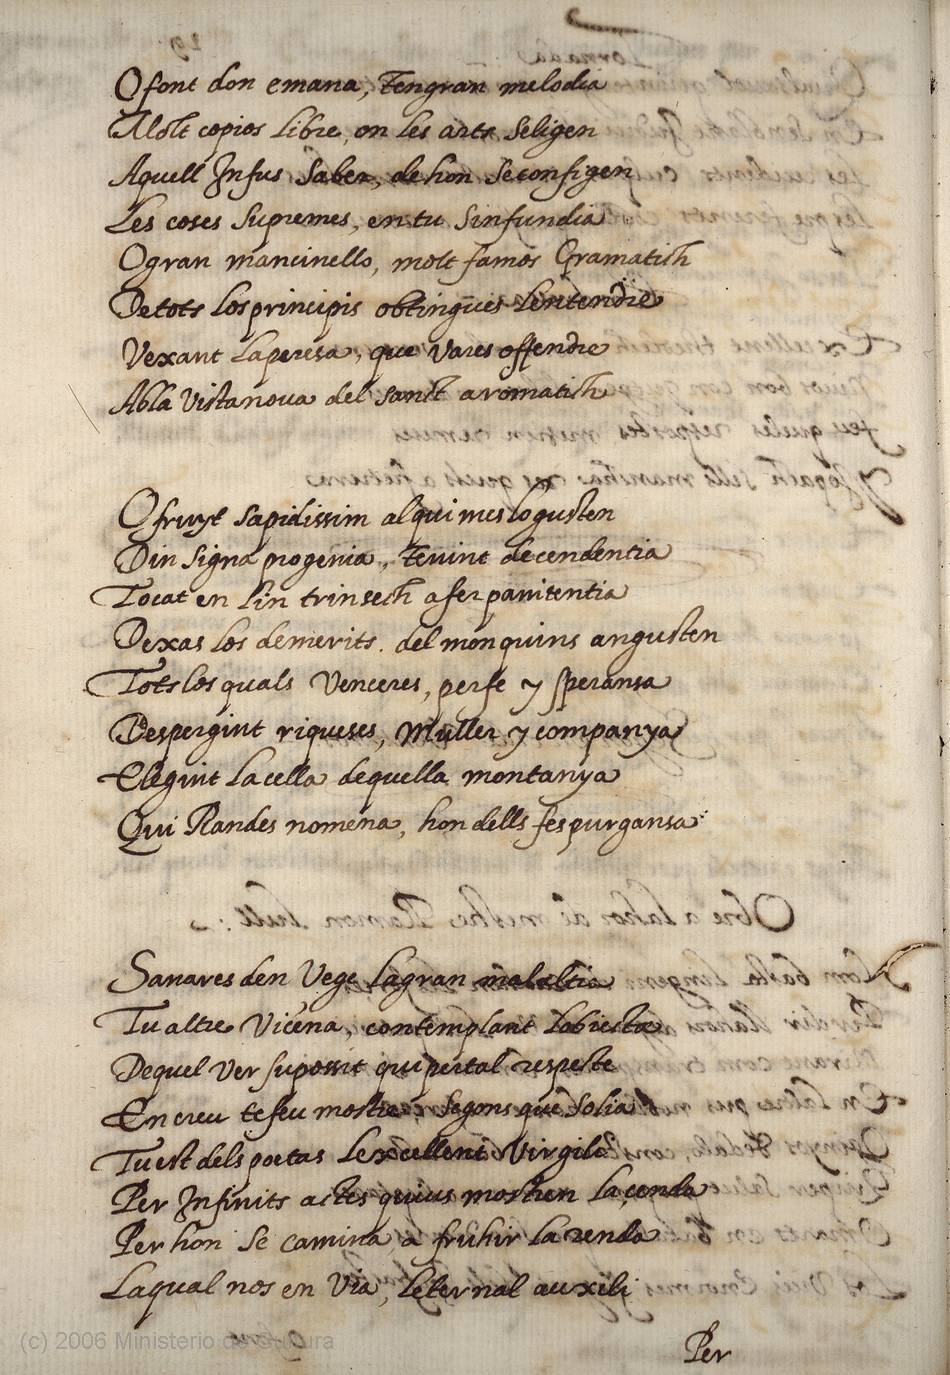 O font don emana, tengran melodia
Molt copios libre, on les arts Seligen
Aquell Infus Saber, de hon Seconfigen
Les coses Supremes, en tu Sinfundia
O gran mancinello, molt famos Gramatich
De tots los principis obtingues Lentendre
Vexant la peresa, que vares offendre
Ab la Vista nova del sanct aromatich
O fruyt sapidissim al qui mes lo gusten
Din signa progenia, tenint decendentia
Tocat en lin trinsech a fer panitentia
Dexas los demerits. del mon quins angusten
Tots los quals Venceres, per fe y speransa
Despergint riqueses, Muller y companya
Elegint la cella de quella montanya
Qui Randes nomena, hon dells fes purgansa
Sanares den Vege la gran malaltia
Tu altre Vicena, contemplant lobiecte
De quel ver supossit qui per tal respecte
En creu te feu mostre, Segons que Solia
Tu est dels poetas Lexcellent Virgili
Per Infinits actes quius mostren la cenda
Per hon Se camina a fruhir la renda
La qual nos en Via, Leternal auxili
Per
(c) 2006 Ministerio de Cultura